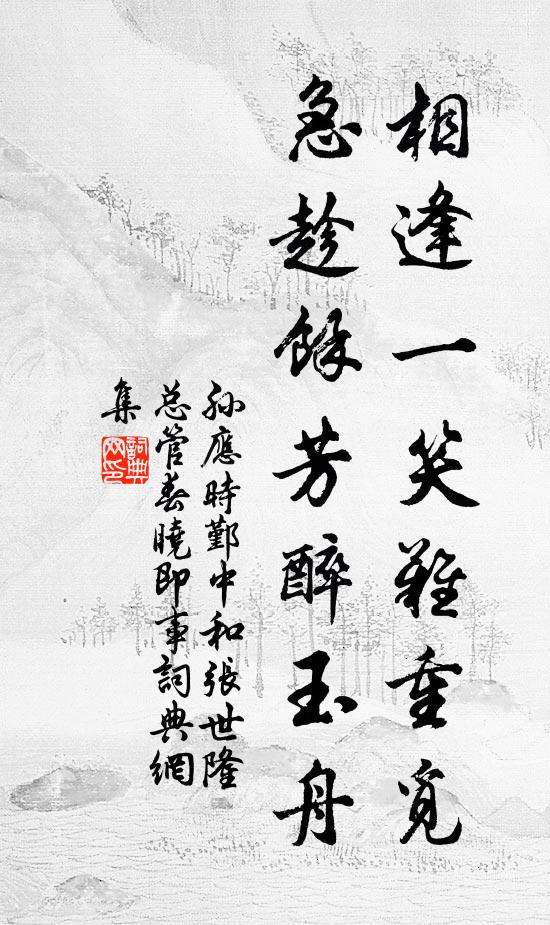 相逢一笑難重覓
急趁餘芳醉玉舟
孙應時鄞中和張世隆
总管春曉即事詞典網
集
詞典
网印